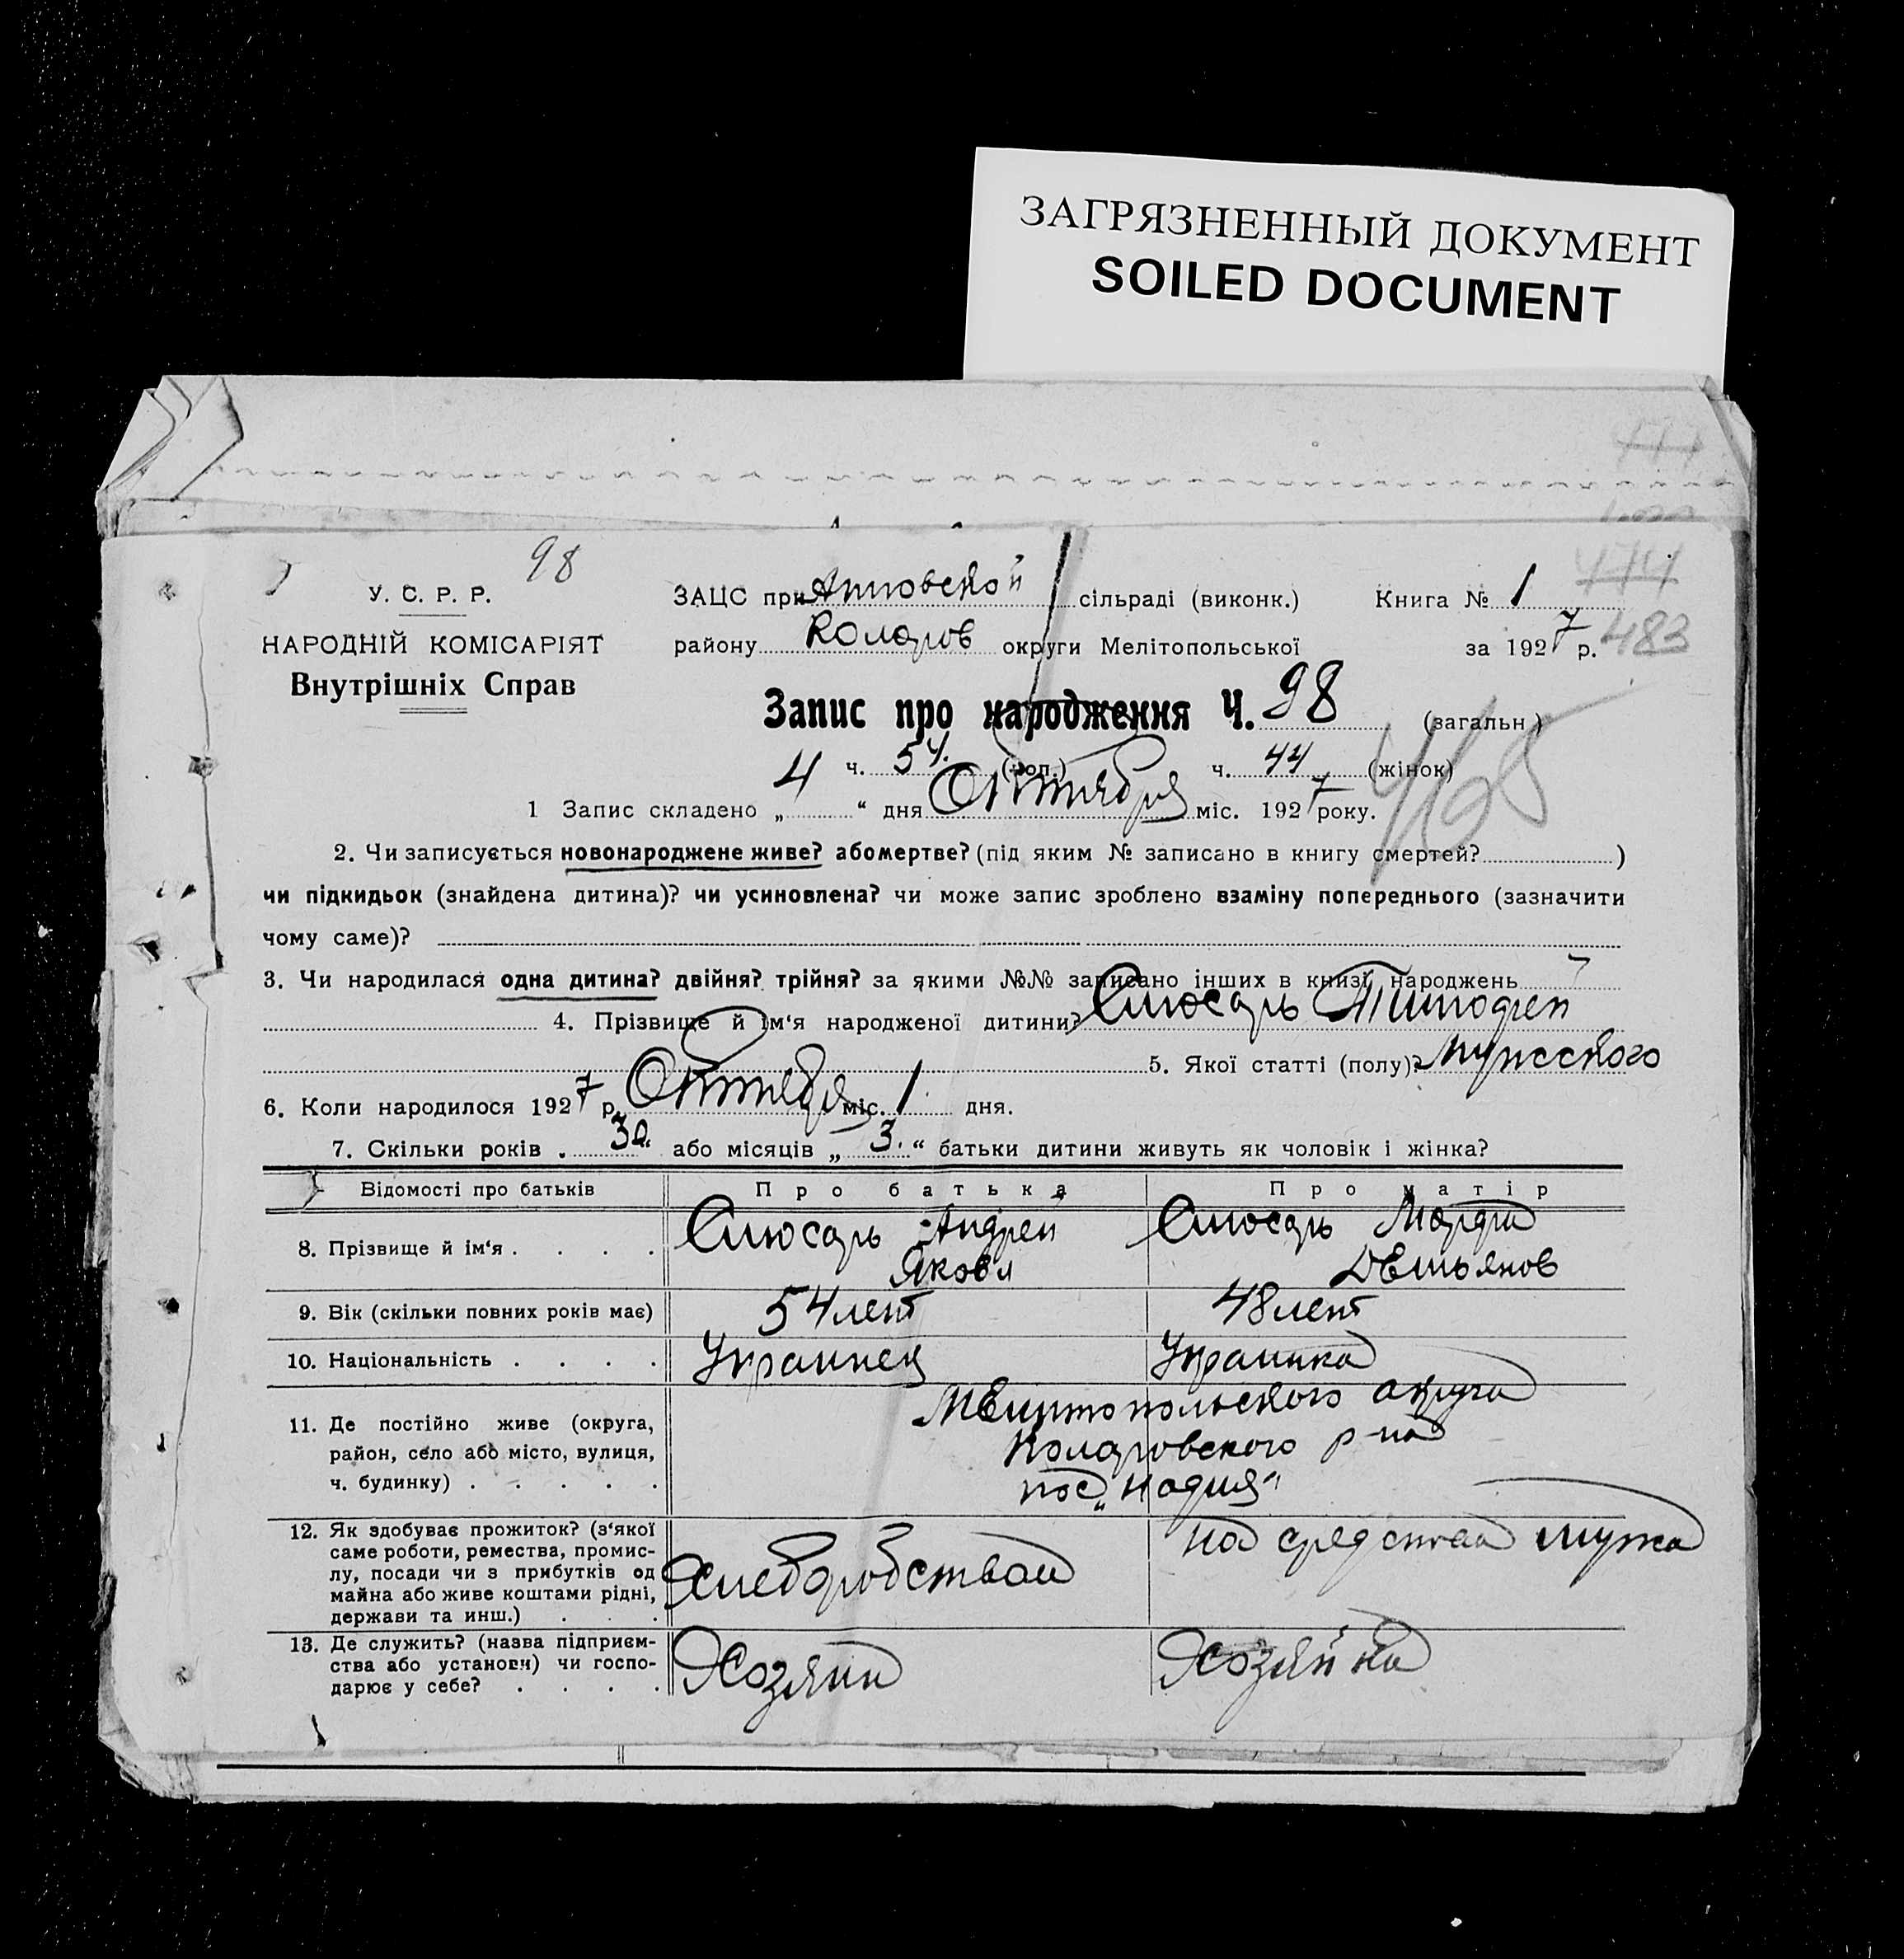 ЗАГРЯЗНЕННЫЙ ДОКУМЕНТ
SOILED DOCUMENT
98
У. С. Р. Р.
НАРОДНІЙ КОМІСАРІЯТ
Внутрішніх Справ
ЗАЦС при сільраді (виконк.) Книга № 1
474
району Коларов округи Мелітопольської за 1927 р. 483
Запис про народження Ч. 98 (загальн)
ч. 54. (хоп.) ч. 44 (жінок)
1 Запис складено „4“ дня Октября міс. 1927 року.
2. Чи записується новонароджене живе? або мертве? (під яким № записано в книгу смертей? )
чи підкидьок (знайдена дитина)? чи усиновлена? чи може запис зроблено взаміну попереднього (зазначити
чому саме)?
3. Чи народилася одна дитина? двійня? трійня? за якими №№ записано інших в книзі народжень
4. Прізвище й ім‘я народженої дитини? Слюсарь Тимофей
5. Якої статті (полу)? мужского
6. Коли народилося 1927 р. Октября міс. 1 дня.
7. Скільки років „30“ або місяців „3.“ батьки дитини живуть як чоловік і жінка?
Відомості про батьків Про батька Про матір
8. Прізвище й ім‘я . . . . Слюсарь Андрей Слюсарь Марфа
Яковл Демьянов
9. Вік (скільки повних років має) 54 лет 48 лет
10. Національність . . . . Украинец Украинка
11. Де постійно живе (округа, Мелитопольского округа
район, село або місто, вулиця, Коларовского р-на
ч. будинку) . . . . . пос „Надия“
12. Як здобуває прожиток? (з‘якої
саме роботи, ремества, промис-
лу, посади чи з прибутків од
майна або живе коштами рідні,
держави та инш.) . . . Хлеборобством на средства мужа
13. Де служить? (назва підприєм-
ства або установи) чи госпо-
дарює у себе? . . . . Хозяин Хозяйка